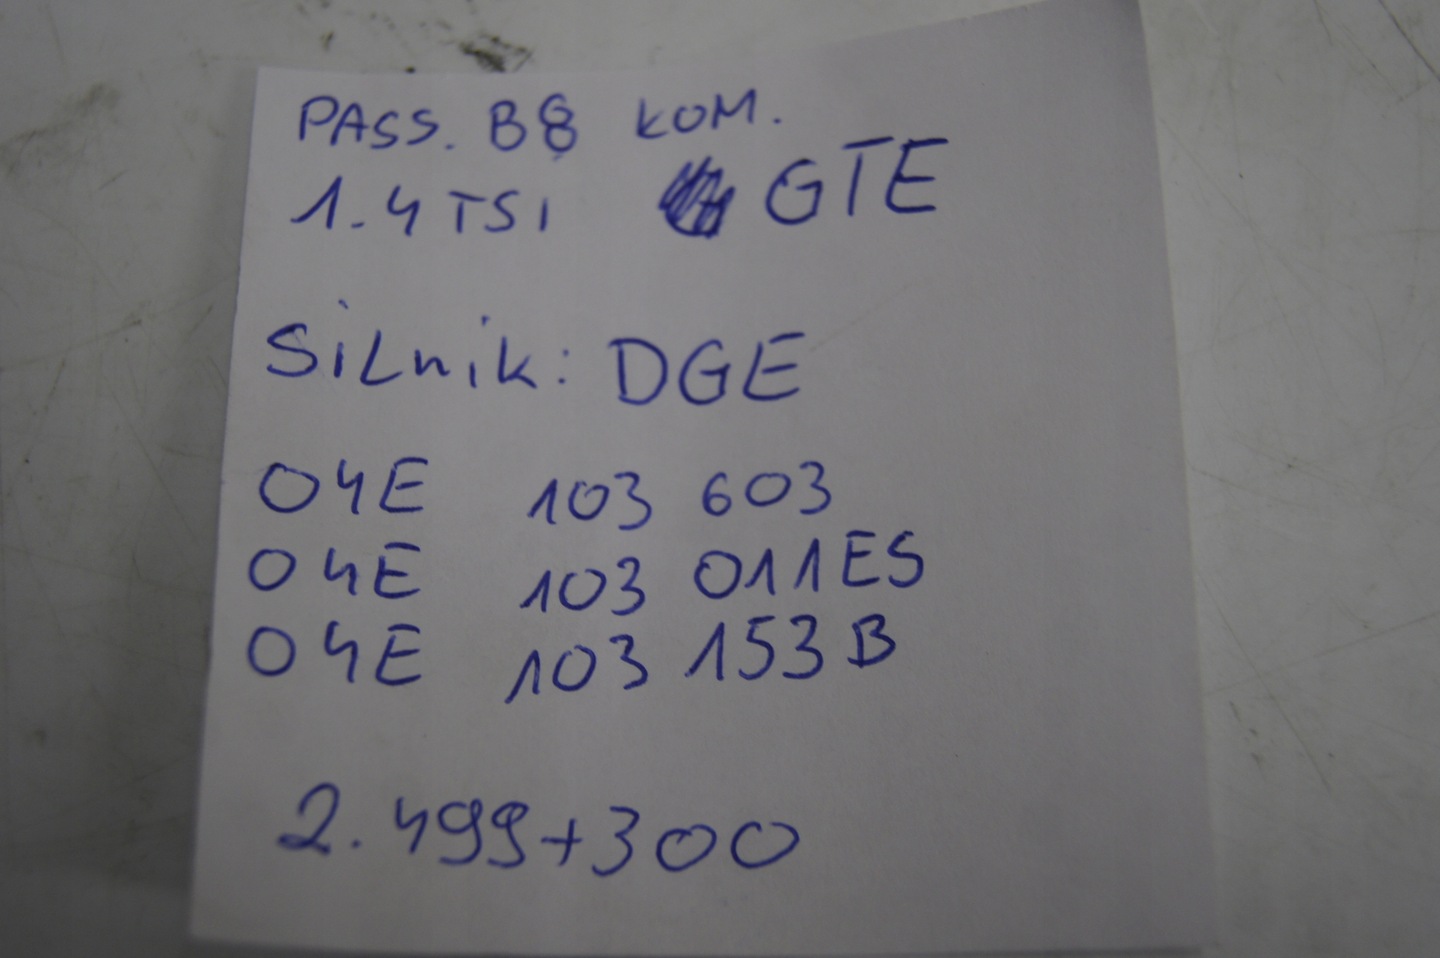 PASS. B8 KOM.
1.4 TSI GTE
SiLnik: DGE
04E 103 603
04E 103 011ES
04E 103 153B
2.499+300